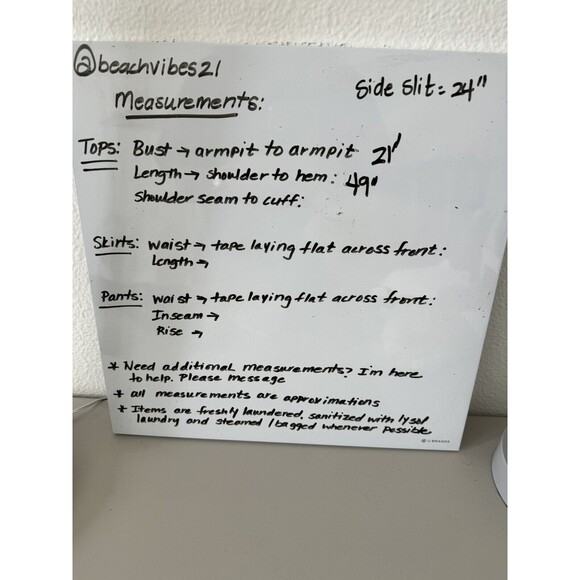 @beachvibes21
Side Slit = 24"
Measurements:
Tops: Bust → armpit to armpit 21"
Length → shoulder to hem: 49"
Shoulder seam to cuff:
Skirts: Waist → tape laying flat across front:
Length →
Pants: Waist → tape laying flat across front:
Inseam →
Rise →
* Need additional measurements? I'm here
to help. Please message
* all measurements are approximations
* Items are freshly laundered, sanitized with lysol
laundry and steamed / bagged whenever possible
U BRANDS